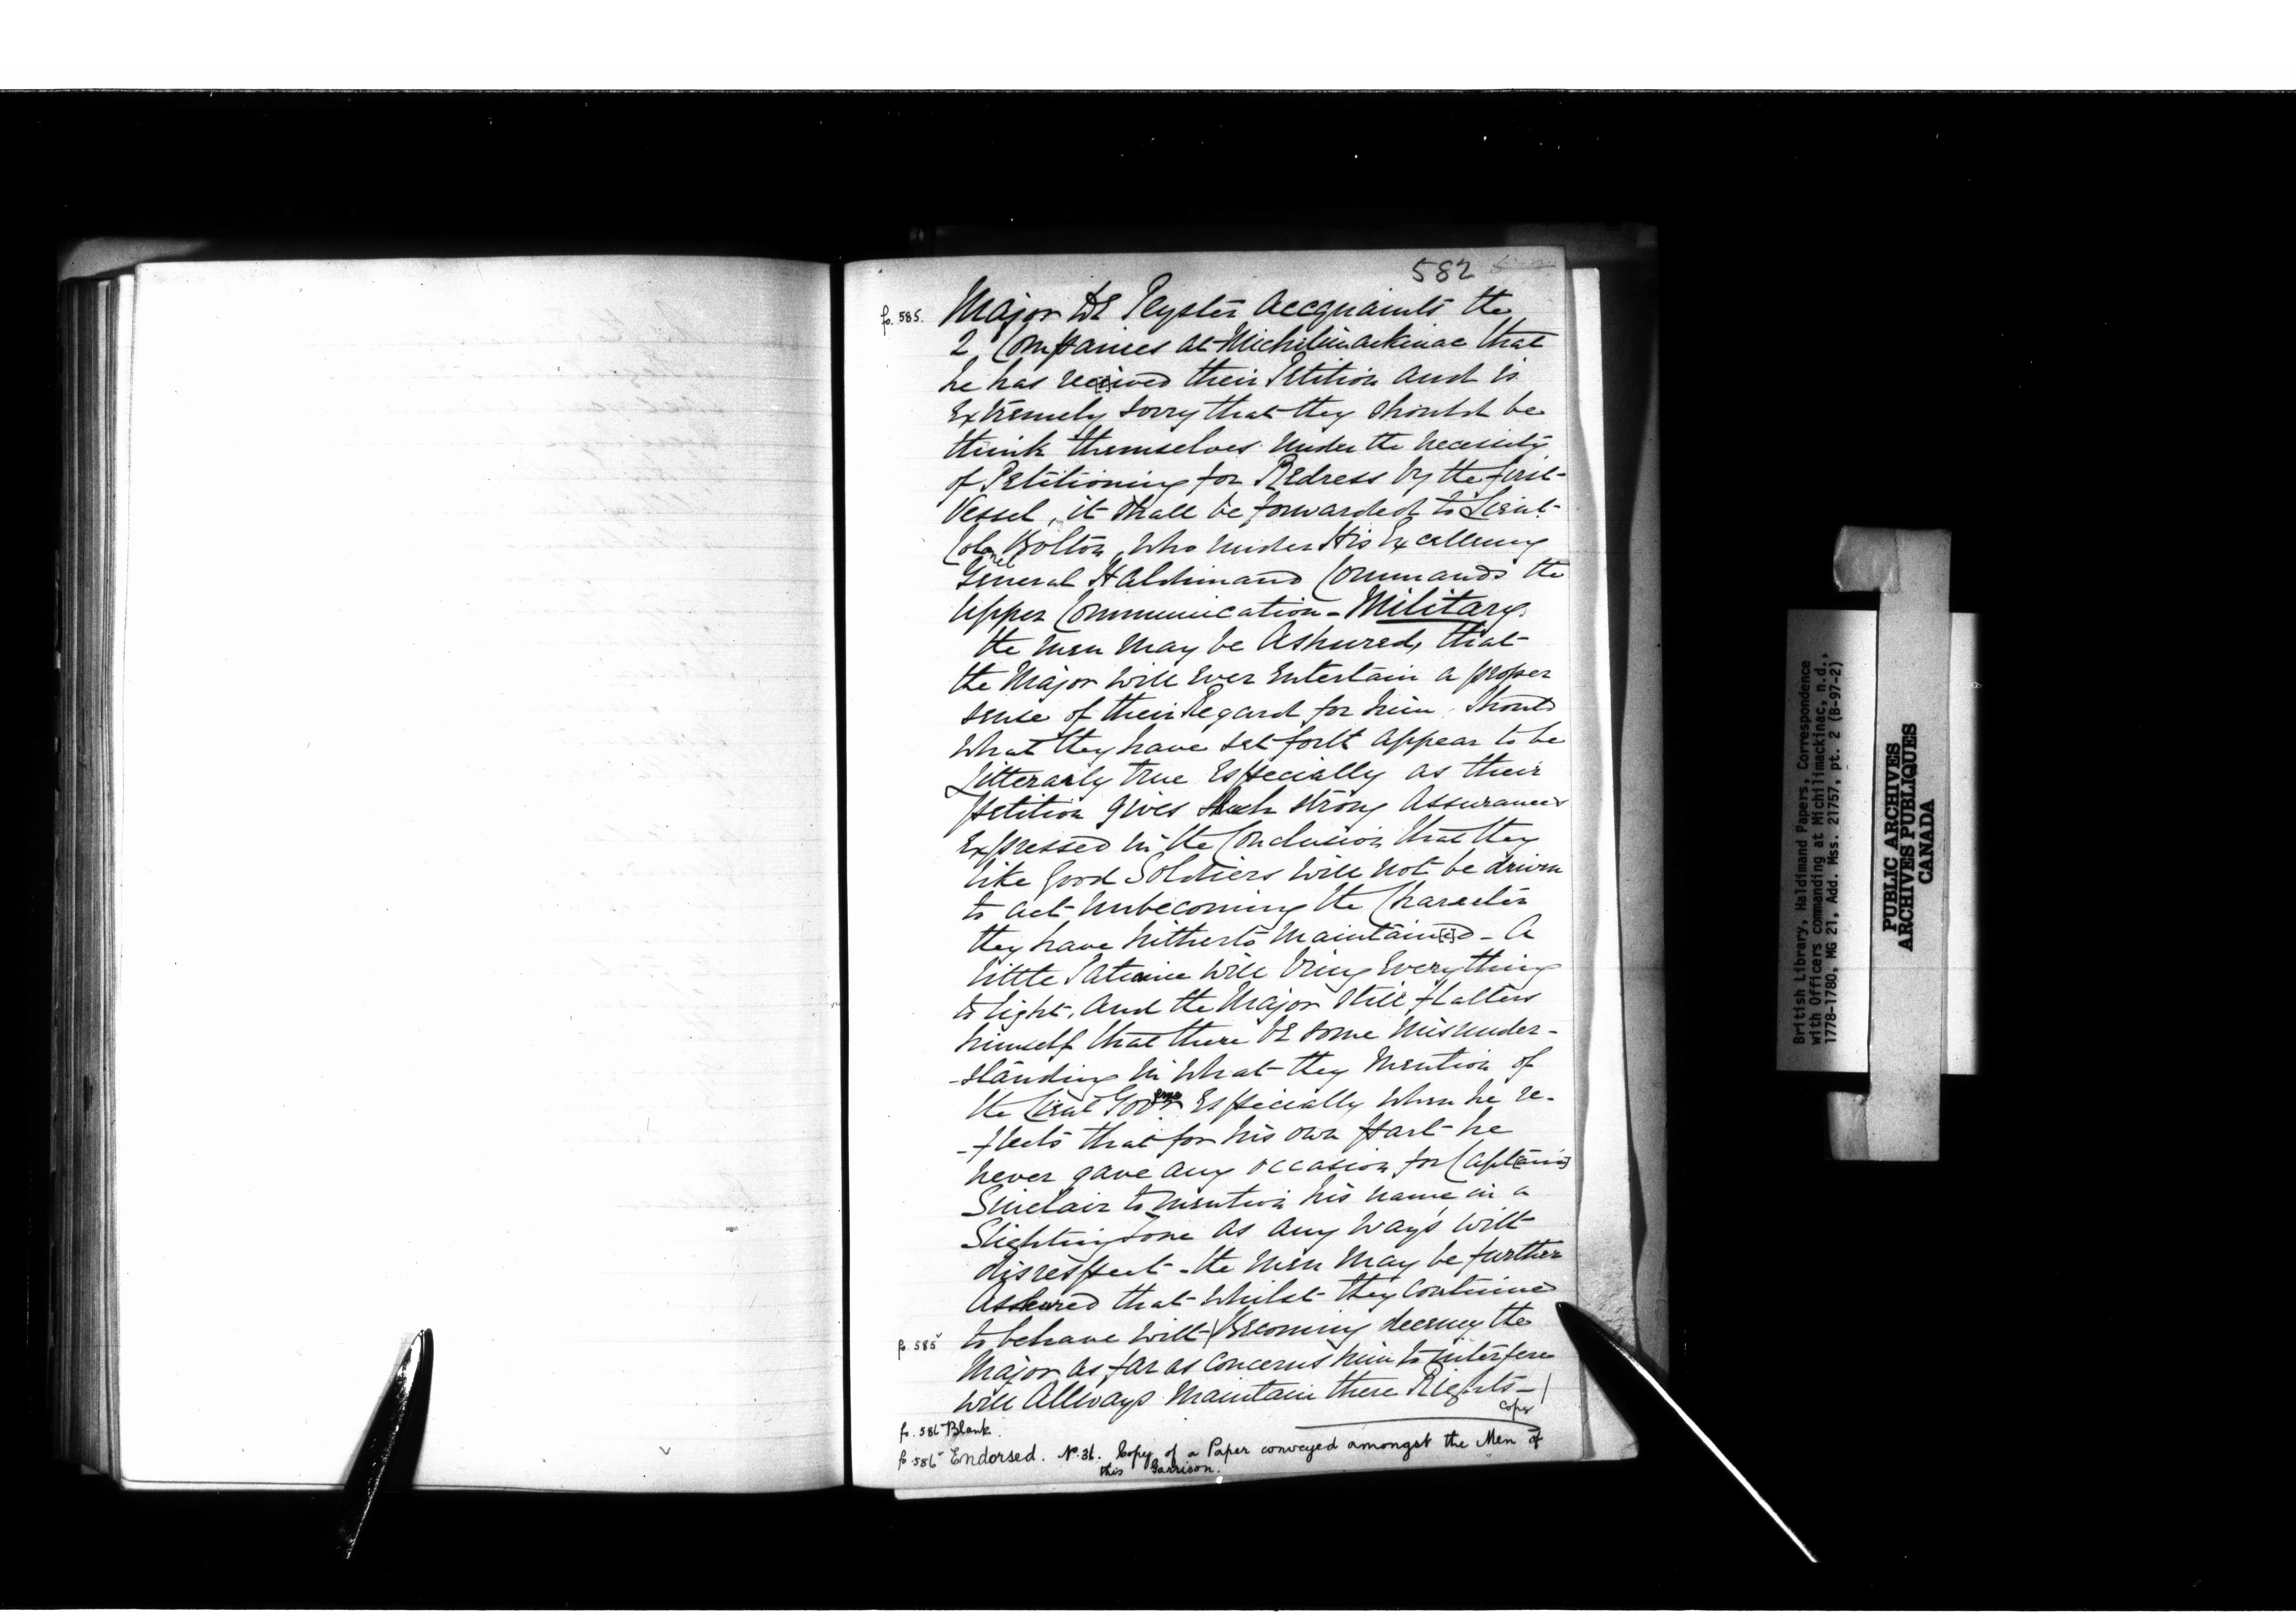 582
fo. 585. Major De Peyster Accquaints the
2 Companies at Michilimackinac that
he has rec[e]ived their Petition and is
Extremely sorry that they should be
think themselves under the necessity
of Petitioning for Redress by the first
Vessel, it shall be forwarded to Lieut-
Colonel Bolton, who under His Excellency
General Haldimand Commands the
Upper Communication - Military.
the men may be Ashured, that
the Major will ever Entertain a proper
sense of their Regard for him. Should
what they have set forth appear to be
Litterarly true Especially as their
petition gives such strong Assurances
Expressed in the Conclusion that they
like good Soldiers will not be driven
to act unbecoming the Character
they have hitherto maintain[e]d - A
little Patience will bring Everything
to light, and the Major still flatters
himself that there be some misunder-
-standing in what they mention of
the Lieut Govr Especially when he re-
-flects that for his own part he
never gave any occasion for Capt[ain]
Sinclair to mention his name in a
Slighting Tone as any ways with
disrespect - the men may be further
Ashured that whilst they continue
fo. 585v to behave with | Becoming decency the
Major as far as concerns him to interfere
will Allways maintain there Rights - |
Copy
fo. 586 Blank.
fo. 586v Endorsed. No. 36. Copy of a Paper conveyed amongst the Men of
this Garrison.
British Library, Haldimand Papers, Correspondence
with Officers commanding at Michilimackinac, n.d.,
1778-1780, MG 21, Add. Mss. 21757, pt. 2 (B-97-2)
PUBLIC ARCHIVES
ARCHIVES PUBLIQUES
CANADA